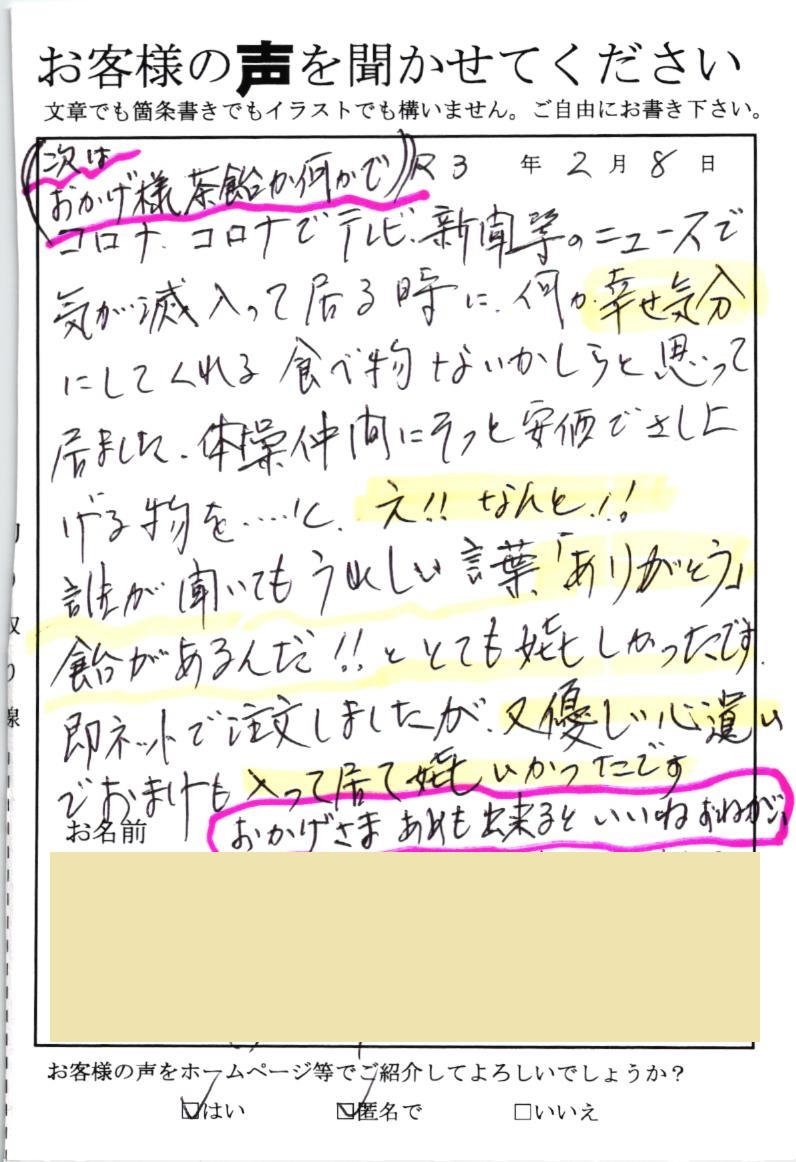 お客様の声を聞かせてください
文章でも箇条書きでもイラストでも構いません。ご自由にお書き下さい。
R3年2月8日
(次は
おかげ様茶飴か何かで)
コロナ、コロナでテレビ、新聞等のニュースで
気が滅入って居る時に、何か幸せ気分
にしてくれる食べ物ないかしらと思って
居ました。体操仲間にそっと安価でさし上
げる物を……と、え!!なんと!!
誰が聞いてもうれしい言葉「ありがとう」
飴があるんだ!!ととても嬉しかったです。
即ネットで注文しましたが、又優しい心遣い
でおまけも入って居て嬉しかったです
お名前
おかげさまあめも出来るといいねおねがい
お客様の声をホームページ等でご紹介してよろしいでしょうか?
☑はい ☑匿名で □いいえ